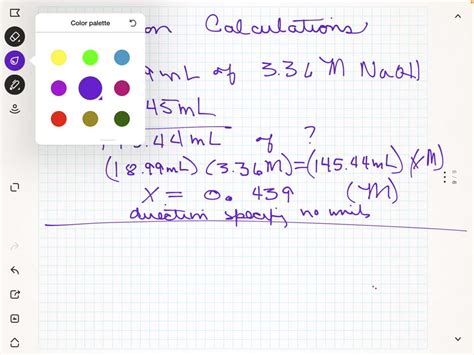 Color palette
on Calculations
9mL of 3.36 M NaOH
45mL
.44mL of ?
(18.99mL) (3.36M) = (145.44mL) (XM)
X = 0.439 (M)
direction specify no units